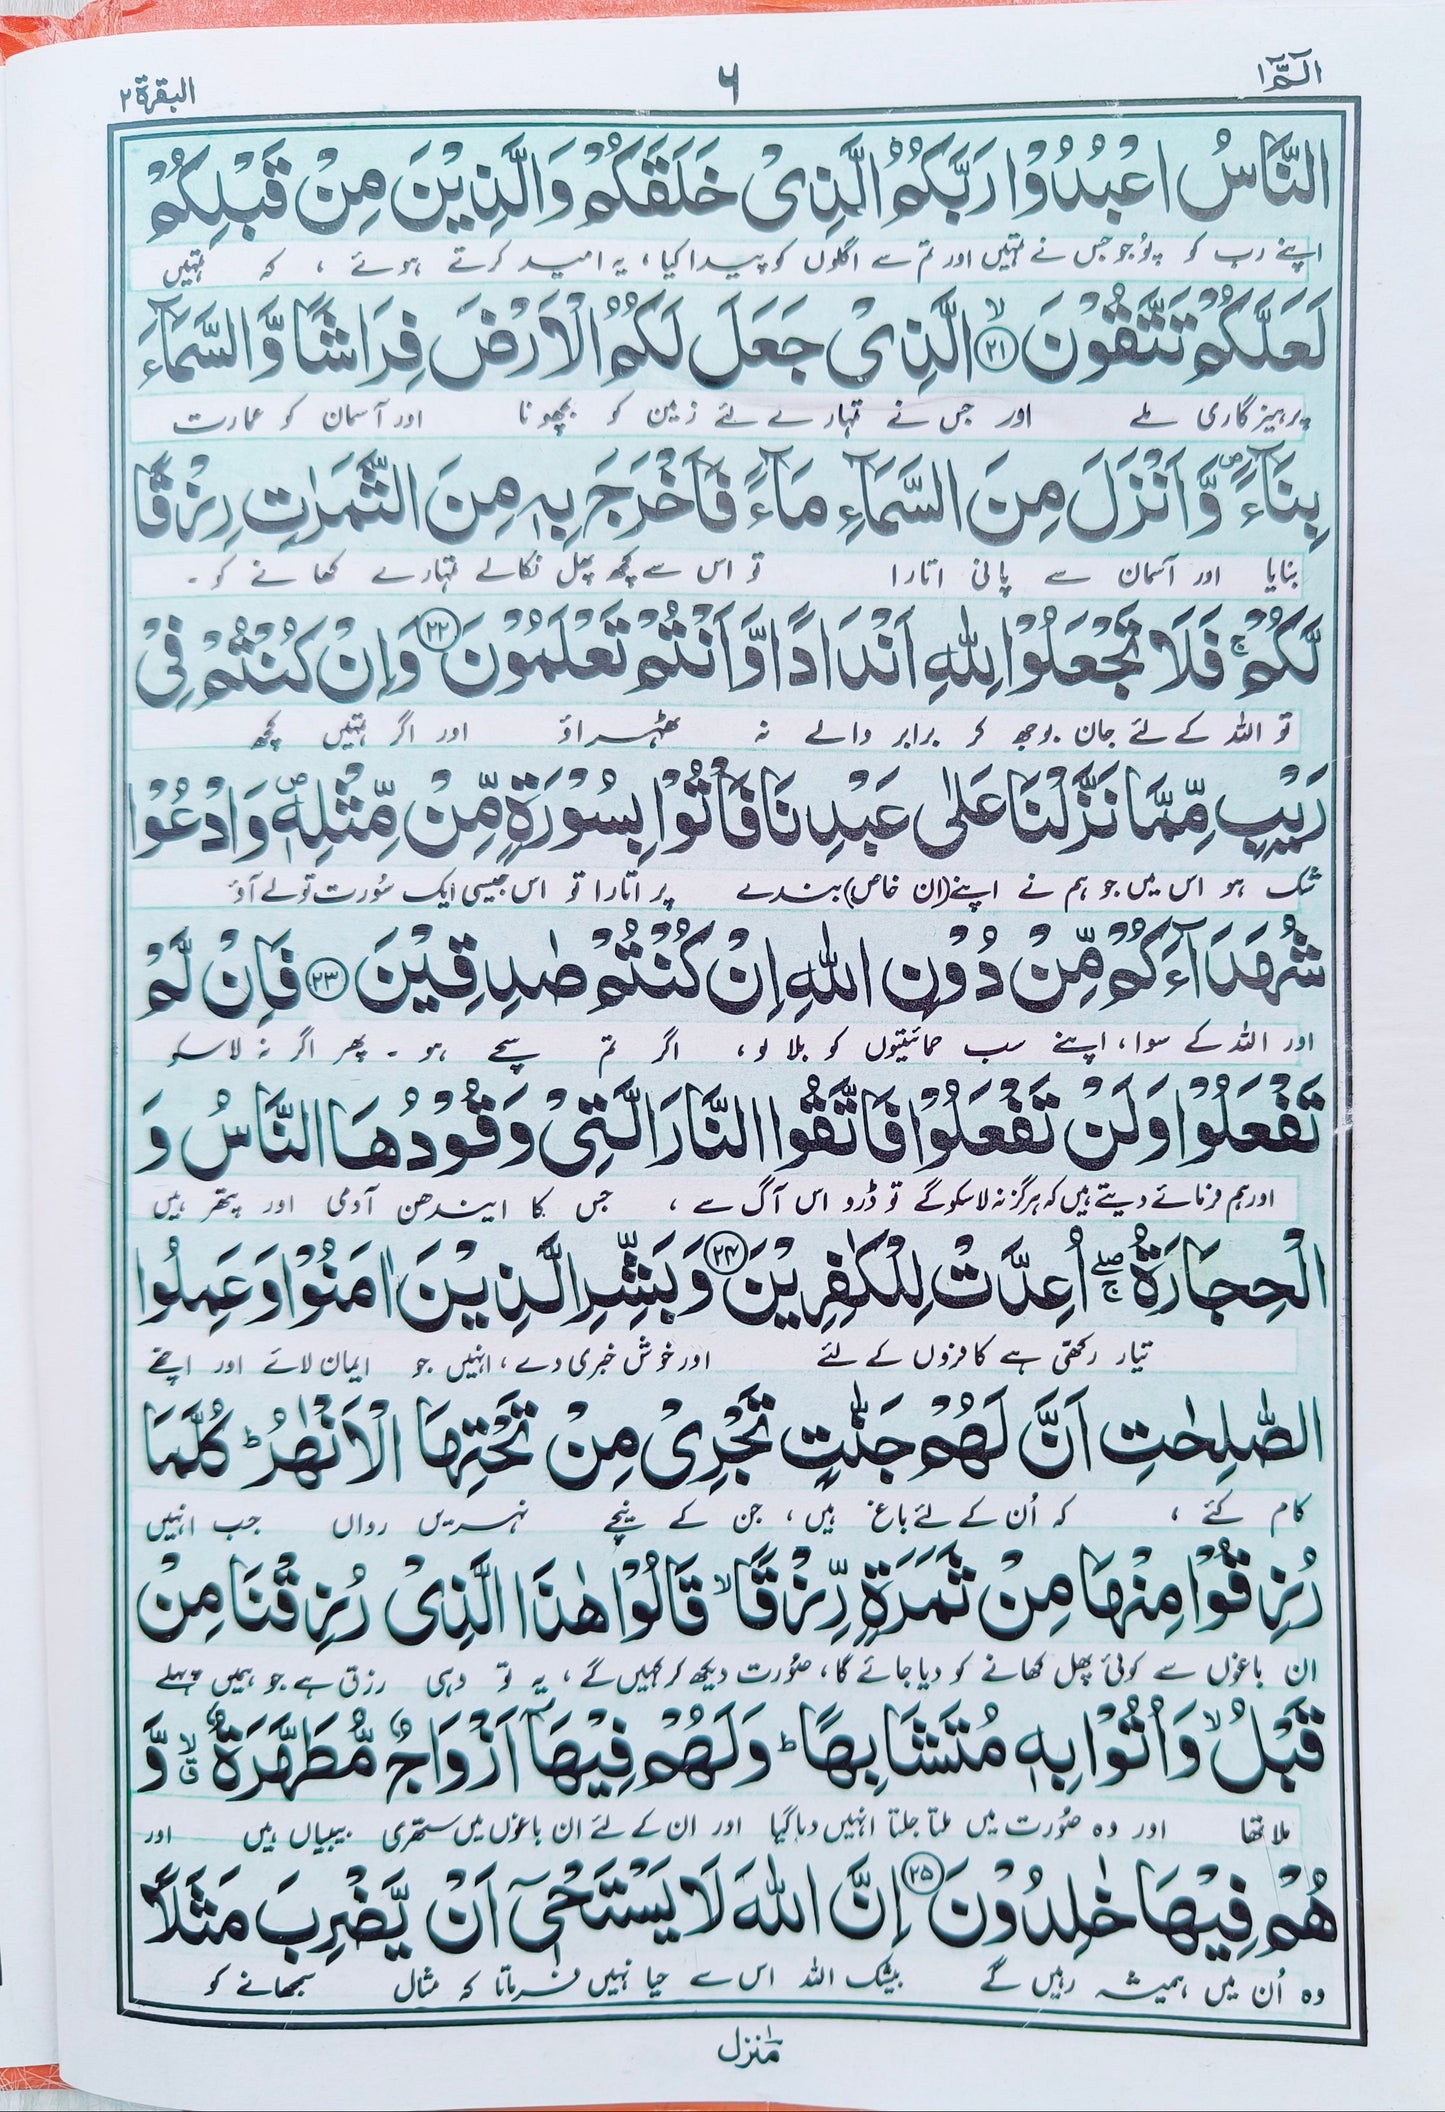 الٓمّٓ ١
٦
البقرة ٢
النَّاسُ اعْبُدُوْا رَبَّكُمُ الَّذِیْ خَلَقَكُمْ وَالَّذِیْنَ مِنْ قَبْلِكُمْ
اپنے رب کو پُوجو جس نے تمہیں اور تم سے اگلوں کو پیدا کیا ، یہ امید کرتے ہوئے ، کہ تمہیں
لَعَلَّكُمْ تَتَّقُوْنَ ﴿٢١﴾ۙ الَّذِیْ جَعَلَ لَكُمُ الْاَرْضَ فِرَاشًا وَّالسَّمَآءَ
پرہیزگاری ملے اور جس نے تمہارے لئے زمین کو بچھونا اور آسمان کو عمارت
بِنَآءً ۪ وَّاَنْزَلَ مِنَ السَّمَآءِ مَآءً فَاَخْرَجَ بِهٖ مِنَ الثَّمَرٰتِ رِزْقًا
بنایا اور آسمان سے پانی اتارا تو اس سے کچھ پھل نکالے تمہارے کھانے کو ۔
لَّكُمْ ۚ فَلَا تَجْعَلُوْا لِلّٰهِ اَنْدَادًا وَّاَنْتُمْ تَعْلَمُوْنَ ﴿٢٢﴾ وَاِنْ كُنْتُمْ فِیْ
تو اللہ کے لئے جان بوجھ کر برابر والے نہ ٹھہراؤ اور اگر تمہیں کچھ
رَیْبٍ مِّمَّا نَزَّلْنَا عَلٰی عَبْدِنَا فَاْتُوْا بِسُوْرَةٍ مِّنْ مِّثْلِهٖ ۪ وَادْعُوْا
شک ہو اس میں جو ہم نے اپنے (ان خاص) بندے پر اتارا تو اس جیسی ایک سُورت تو لے آؤ
شُهَدَآءَكُمْ مِّنْ دُوْنِ اللّٰهِ اِنْ كُنْتُمْ صٰدِقِیْنَ ﴿٢٣﴾ فَاِنْ لَّمْ
اور اللہ کے سوا، اپنے سب حمائتیوں کو بلا لو ، اگر تم سچے ہو ۔ پھر اگر نہ لا سکو
تَفْعَلُوْا وَلَنْ تَفْعَلُوْا فَاتَّقُوا النَّارَ الَّتِیْ وَقُوْدُهَا النَّاسُ وَ
اور ہم فرمائے دیتے ہیں کہ ہرگز نہ لا سکو گے تو ڈرو اس آگ سے ، جس کا ایندھن آدمی اور پتھر ہیں
الْحِجَارَةُ ۖۚ اُعِدَّتْ لِلْكٰفِرِیْنَ ﴿٢٤﴾ وَبَشِّرِ الَّذِیْنَ اٰمَنُوْا وَعَمِلُوا
تیار رکھی ہے کافروں کے لئے اور خوش خبری دے ، انہیں جو ایمان لائے اور اچھے
الصّٰلِحٰتِ اَنَّ لَهُمْ جَنّٰتٍ تَجْرِیْ مِنْ تَحْتِهَا الْاَنْهٰرُ ؕ كُلَّمَا
کام کئے ، کہ اُن کے لئے باغ ہیں ، جن کے نیچے نہریں رواں جب انہیں
رُزِقُوْا مِنْهَا مِنْ ثَمَرَةٍ رِّزْقًا ۙ قَالُوْا هٰذَا الَّذِیْ رُزِقْنَا مِنْ
ان باغوں سے کوئی پھل کھانے کو دیا جائے گا ، صُورت دیکھ کر کہیں گے ، یہ تو وہی رزق ہے جو ہمیں پہلے
قَبْلُ ۙ وَاُتُوْا بِهٖ مُتَشَابِهًا ؕ وَلَهُمْ فِیْهَآ اَزْوَاجٌ مُّطَهَّرَةٌ ۙق وَّ
ملا تھا اور وہ صُورت میں ملتا جلتا انہیں دیا گیا اور ان کے لئے ان باغوں میں ستھری بیبیاں ہیں اور
هُمْ فِیْهَا خٰلِدُوْنَ ﴿٢٥﴾ اِنَّ اللّٰهَ لَا یَسْتَحْیٖٓ اَنْ یَّضْرِبَ مَثَلًا
وہ اُن میں ہمیشہ رہیں گے بیشک اللہ اس سے حیا نہیں فرماتا کہ مثال سمجھانے کو
منزل ١